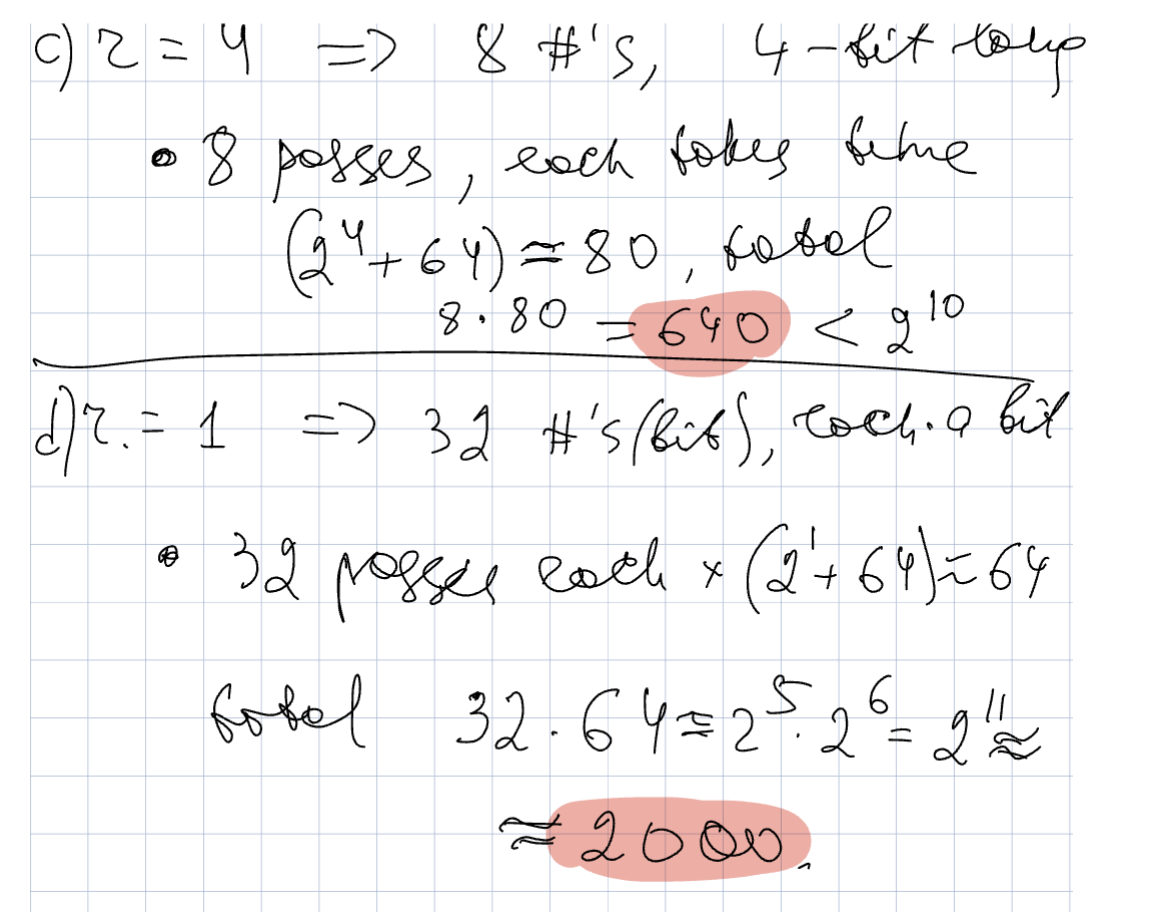 c) r = 4 => 8 #'s, 4-bit long
• 8 passes, each takes time
(2⁴ + 64) ≅ 80, total
8 · 80 = 640 < 2¹⁰
d) r = 1 => 32 #'s (bit), each a bit
• 32 passes each × (2¹ + 64) ≈ 64
total 32 · 64 = 2⁵ · 2⁶ = 2¹¹ ≈
≈ 2000.